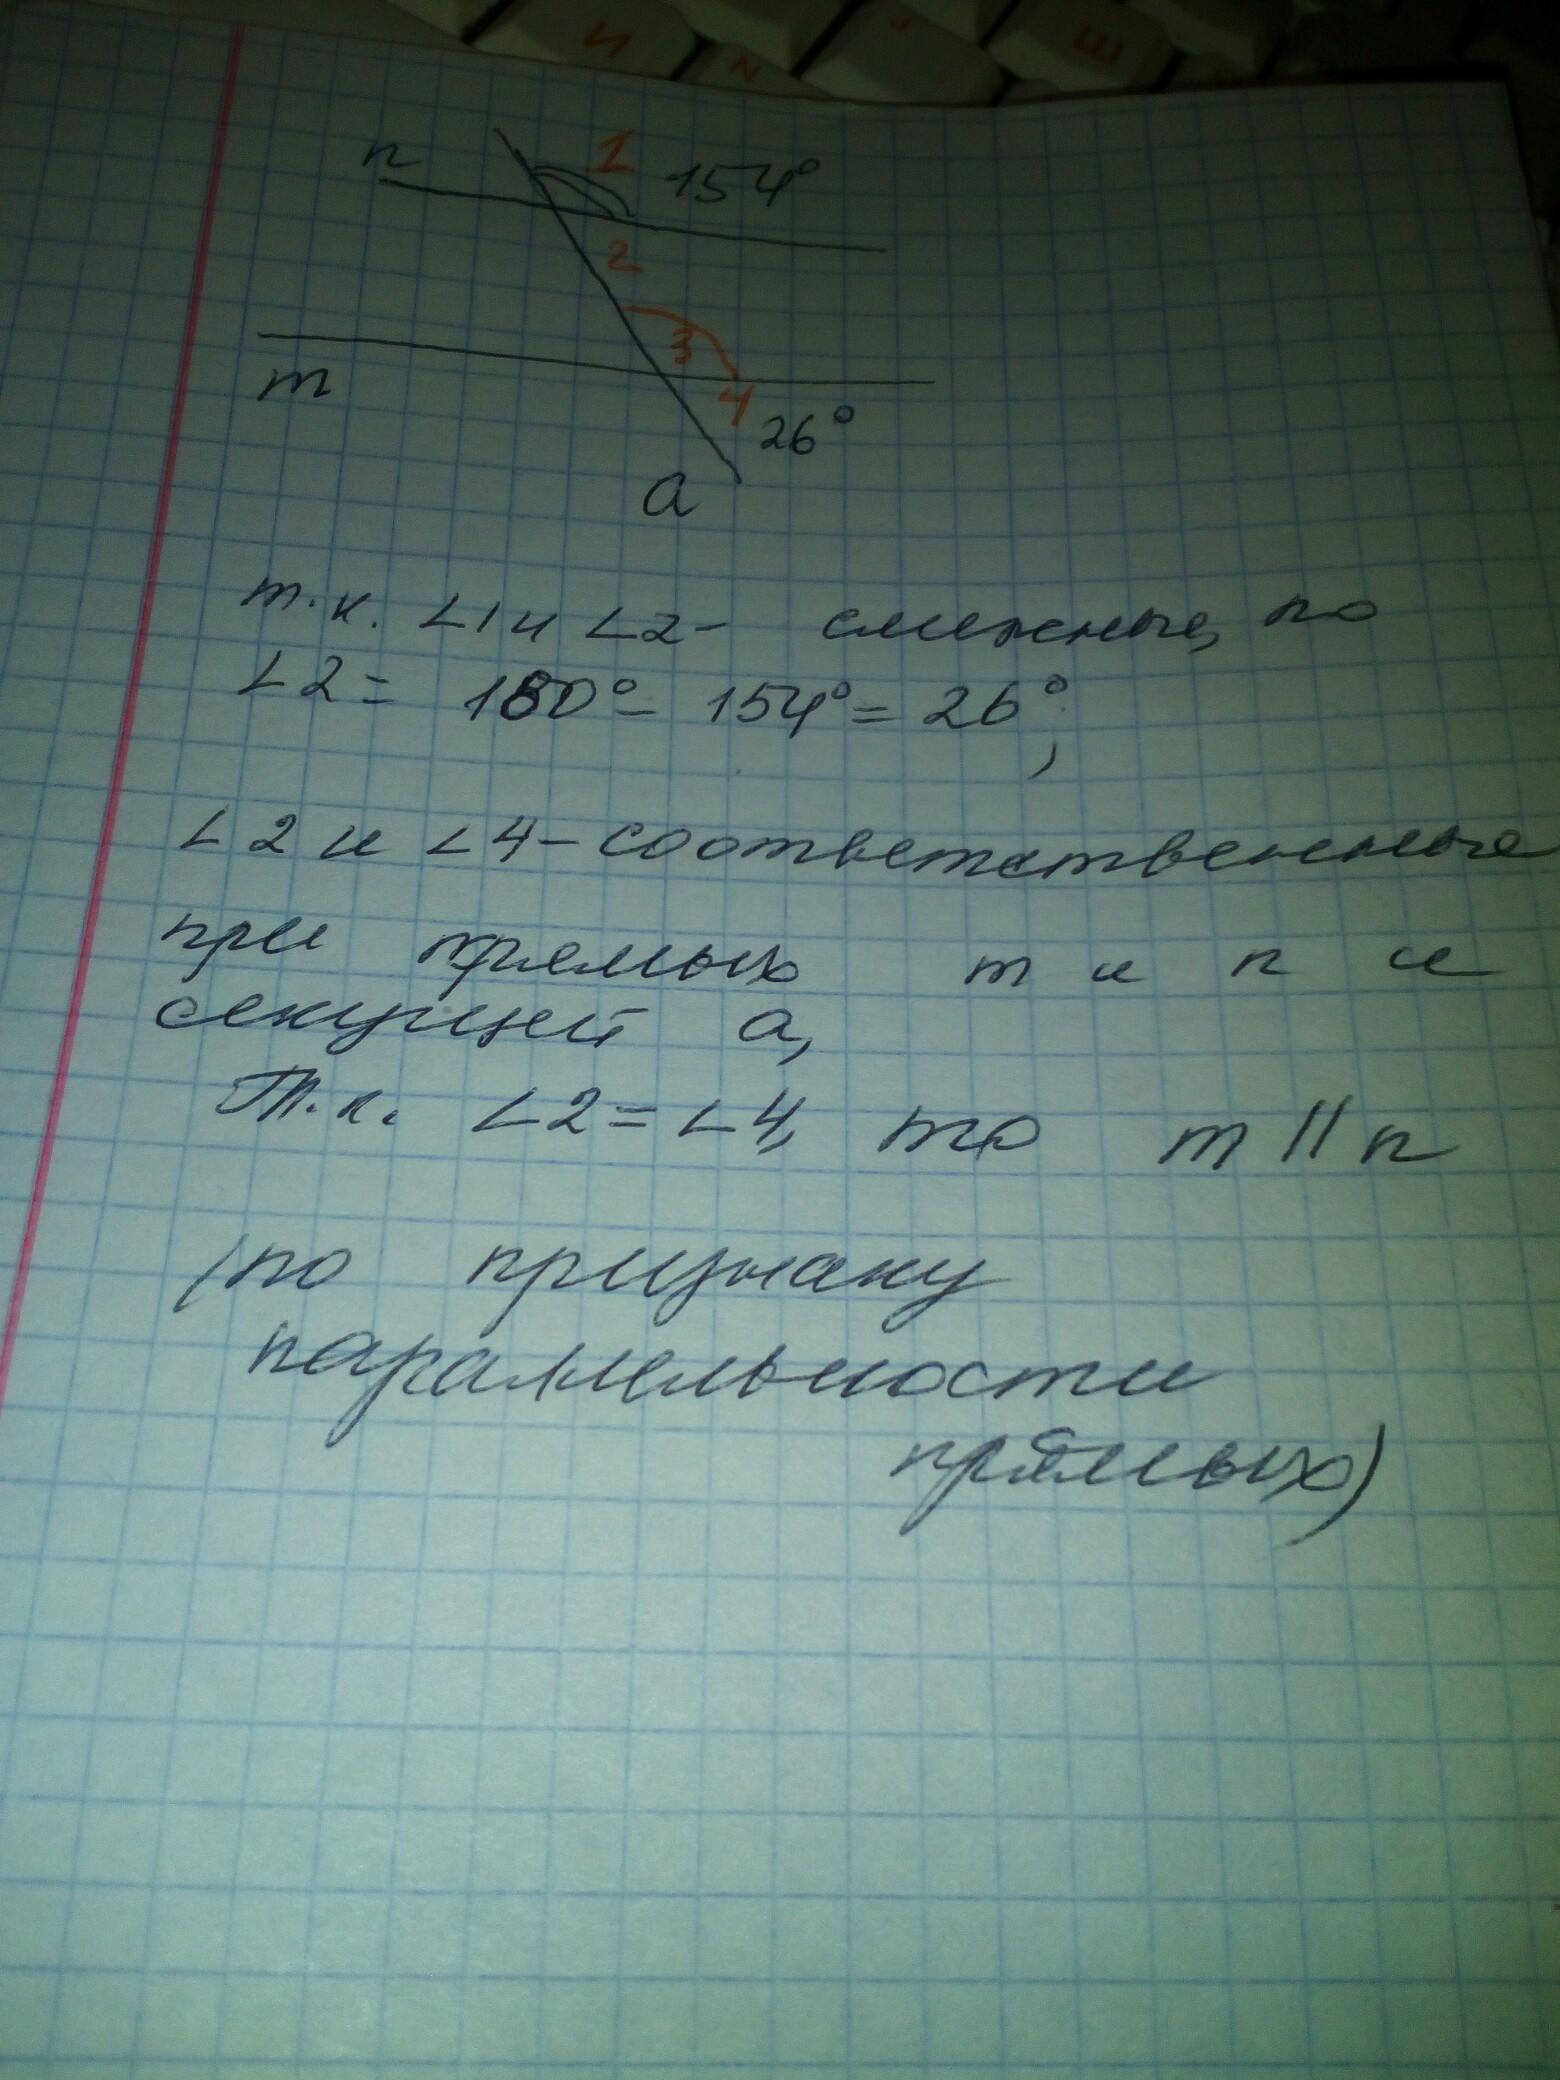 И
N
Ш
n
1
154°
2
3
m
4
26°
a
т.к. ∠1 и ∠2 - смежные, по
∠2 = 180° - 154° = 26°;
∠2 и ∠4 - соответственные
при прямых m и n и
секущей a,
Т.к. ∠2 = ∠4, то m || n
(по признаку
параллельности
прямых)